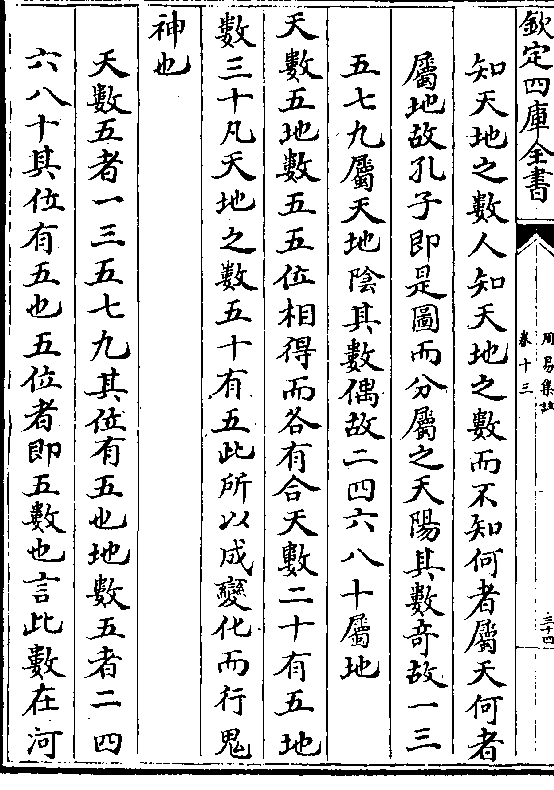 欽定四庫全書
周易集註
卷十三
三十四
知天地之數人知天地之數而不知何者屬天何者
屬地故孔子即是圖而分屬之天陽其數奇故一三
五七九屬天地陰其數偶故二四六八十屬地
天數五地數五五位相得而各有合天數二十有五地
數三十凡天地之數五十有五此所以成變化而行鬼
神也
天數五者一三五七九其位有五也地數五者二四
六八十其位有五也五位者即五數也言此數在河